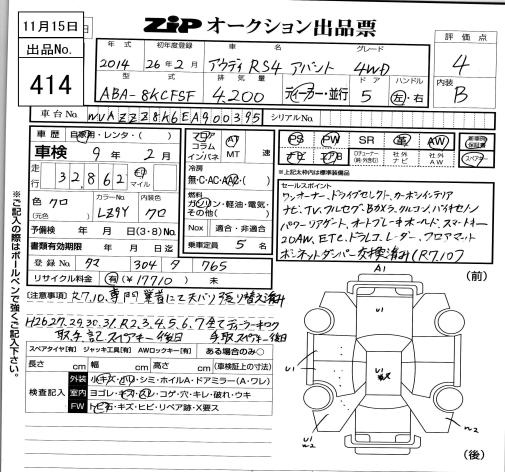 11月15日
出品No.
414
ZIP オークション出品票
評価点
4
内装
B
年式 初年度登録 車名 グレード
2014 26年2月 アウディ RS4 アバント 4WD
型式 排気量 ドア ハンドル
ABA-8KCFSF 4,200 ディーラー・並行 5 左・右
車台No. WUAZZZ8K6EA900395 シリアルNo.
車歴 自家用・レンタ・( )
車検 9年 2月
走行 32,862 km マイル
色 クロ
(元色)
カラーNo. LZ9Y
内装色 クロ
予備検 年 月 日(3・8)No.
書類有効期限 年 月 日迄
登録No. 304 765
リサイクル料金 有(¥17710)無
フロア AT
コラム
インパネ MT 速
冷房
無・C・AC・AAC・( )
燃料
ガソリン・軽油・電気・
その他( )
Nox 適合・非適合
乗車定員 5 名
PS PW SR 革 AW
ナビ エアB 社外ナビ 社外AW
新車時保証書
スペアキー
※上記太枠内は標準装備品
セールスポイント
ワンオーナー、ドライブセレクト、カーボンインテリア
ナビ、TV、フルセグ、BOSE、クルコン、ハイキセノン
パワーリアゲート、オートブレーキホールド、スマートキー
20AW、ETC、ドラレコ、レーダー、フロアマット
ボンネットダンパー交換済み(R7.10)
[注意事項] R7.10、専門業者にて天バリ張り替え済み
H26.27.29.30.31.R2.3.4.5.6.7全てディーラーキロク
取・記・スペアキー後日
スペアタイヤ[有] ジャッキ工具[有] AWロックキー[有] ある場合のみ○
長さ cm 幅 cm 高さ cm (車検証上の寸法)
検査記入
外装 小キズ・小凹・シミ・ホイルA・ドアミラー(A・ワレ)
室内 ヨゴレ・キズ・スレ・コゲ・穴・キレ・破れ・ウキ
FW トビ石・キズ・ヒビ・リペア跡・X要ス
※ご記入の際はボールペンで強くご記入下さい。
A1
(前)
U1
U1
W2
W2
(後)